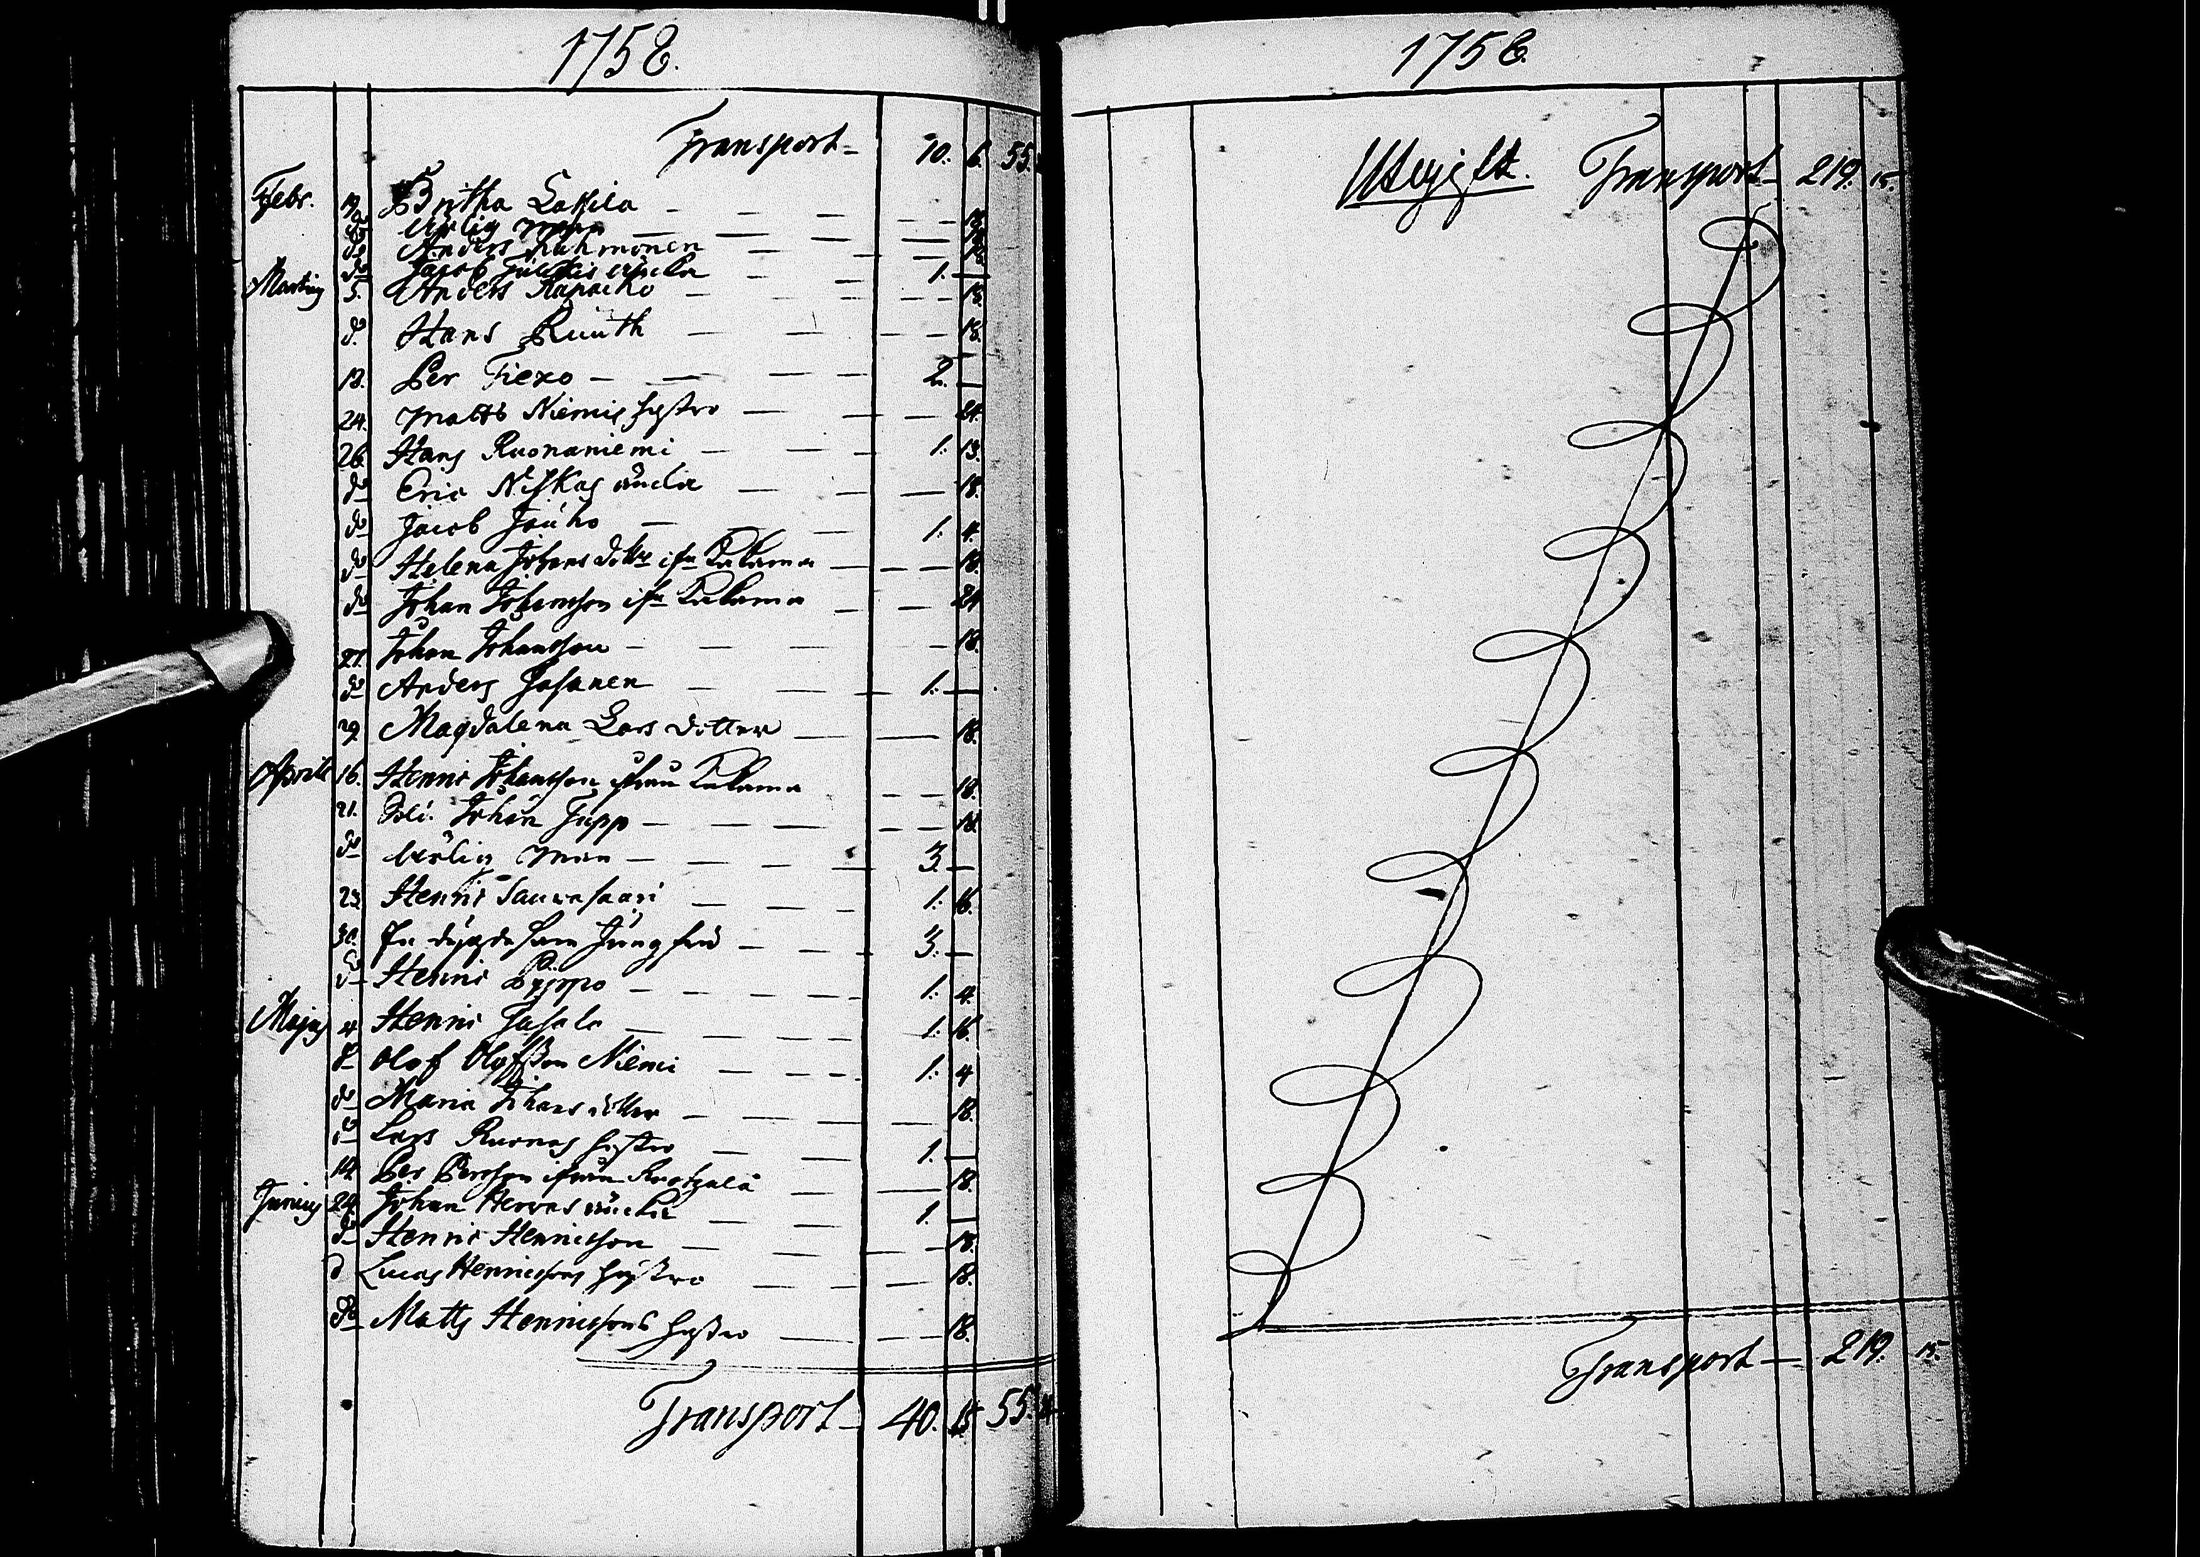 1758.
Transport 10. 6. 55.
Febr. 19. Britha Lassila 18.
do Ärlig man 18.
do Anders Kuhmonen 18.
do Jacob enka 1. —
Martius 5. Anders 18.
do Hans Ruuth 18.
18. Per Fiexo 2. —
24. Matts Niemis hustro 24.
26. Hans Ruonaniemi 1. 13.
do Eric Niskas änkia 18.
do Jacob Jauho 1. 4.
do Helena Johans dotter ifn Kakama 18.
do Johan Johansson ifn Kakama 24
27. Johan Johansson 18.
do Anders Hahanen 1. —
29. Magdalena Lars dotter 18.
Aprilis 16. Henric Johansson ifrån Kakama 18.
21. Johan Jupp 18.
do Ärlig man 3. —
23. Henric Sauvasaari 1. 16.
30. En dygdesam Jungfru 3. —
do Henric Pyppo 1. 4.
Majus 4. Henric Hahala 1. 16
do Olof Olofsson Niemi 1. 4
do Maria Johans dotter 18.
do Lars Ruonas hustro 1. —
14. Per Persson ifrån 18.
Junius 24. Johan Herras änckia 1. —
do Henric Henricsson 18.
do Lucas Henricssons hustro 18.
do Matts Henricssons hustro 18.
Transport 40. 15. 55.
1758.
Utgift. Transport 219. 15.
Transport 219. 15.